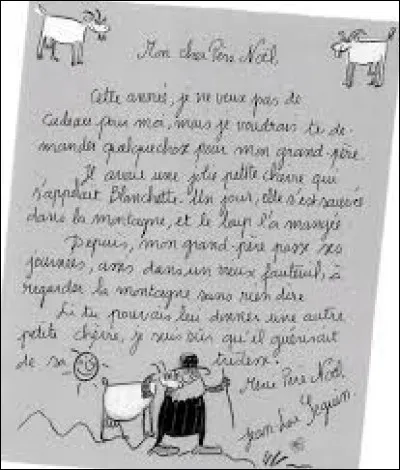 Mon cher Père Noël,
Cette année, je ne veux pas de
cadeau pour moi, mais je voudrais te de-
mander quelque chose pour mon grand-père.
Il avait une jolie petite chèvre qui
s'appelait Blanchette. Un jour, elle s'est sauvée
dans la montagne, et le loup l'a mangée
Depuis, mon grand-père passe ses
journées, assis dans un vieux fauteuil, à
regarder la montagne sans rien dire
Si tu pouvais lui donner une autre
petite chèvre, je suis sûr qu'il guérirait
de sa tristesse.
Merci Père Noël
Jean-Luc Seguin.